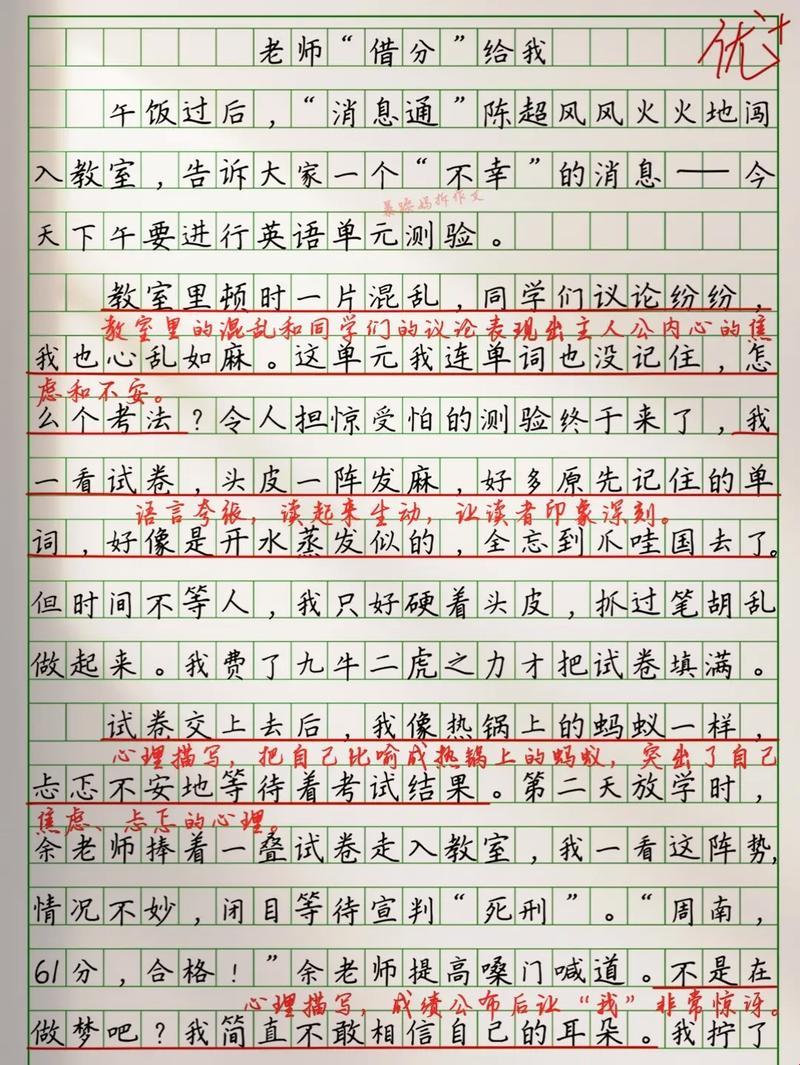 老师“借分”给我
优++
午饭过后，“消息通”陈超风风火火地闯
入教室，告诉大家一个“不幸”的消息——今
暴躁妈拆作文
天下午要进行英语单元测验。
教室里顿时一片混乱，同学们议论纷纷，
教室里的混乱和同学们的议论表现出主人公内心的焦
我也心乱如麻。这单元我连单词也没记住，怎
虑和不安。
么个考法？令人担惊受怕的测验终于来了，我
一看试卷，头皮一阵发麻，好多原先记住的单
语言夸张，读起来生动，让读者印象深刻。
词，好像是开水蒸发似的，全忘到爪哇国去了。
但时间不等人，我只好硬着头皮，抓过笔胡乱
做起来。我费了九牛二虎之力才把试卷填满。
试卷交上去后，我像热锅上的蚂蚁一样，
心理描写，把自己比喻成热锅上的蚂蚁，突出了自己
忐忑不安地等待着考试结果。第二天放学时，
焦虑、忐忑的心理。
余老师捧着一叠试卷走入教室，我一看这阵势，
情况不妙，闭目等待宣判“死刑”。“周南，
61分，合格！”余老师提高嗓门喊道。不是在
心理描写，成绩公布后让“我”非常惊讶。
做梦吧？我简直不敢相信自己的耳朵。我拧了